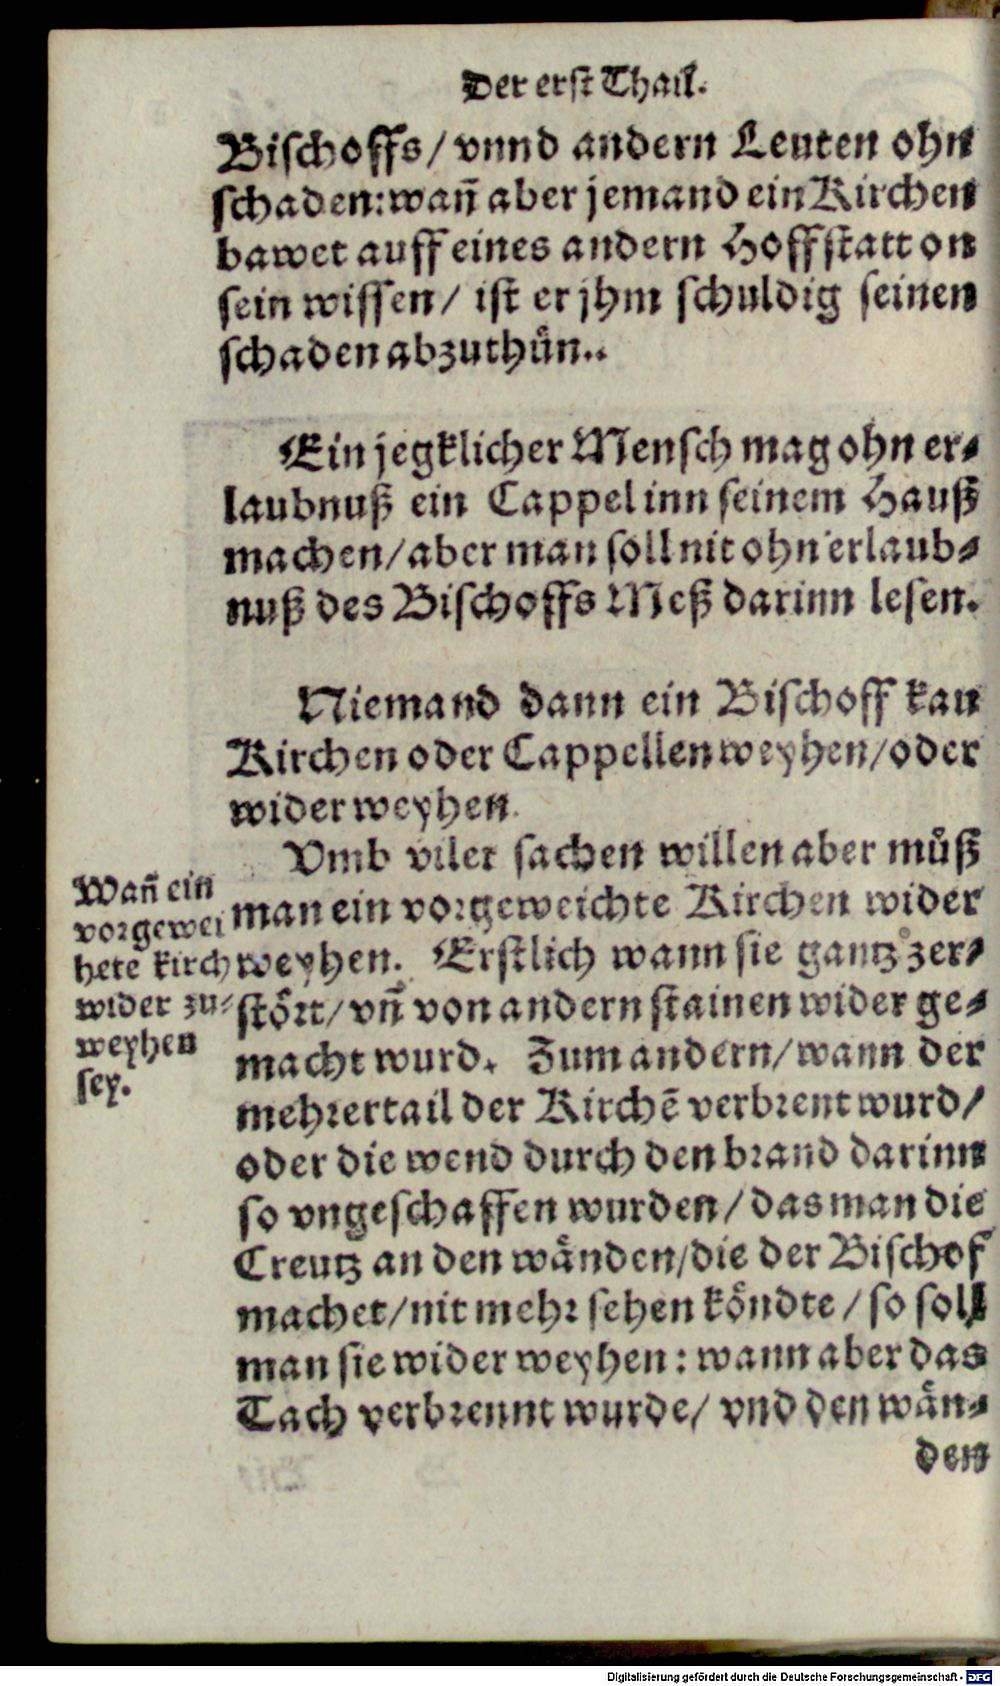 Der erst Thail.
Bischoffs / vnnd andern Leuten ohn
schaden: wañ aber jemand ein Kirchen
bawet auff eines andern Hoffstatt on
sein wissen / ist er jhm schuldig seinen
schaden abzuthůn..
Ein jegklicher Mensch mag ohn er⸗
laubnuß ein Cappel inn seinem Hauß
machen / aber man soll nit ohn erlaub⸗
nuß des Bischoffs Meß darinn lesen.
Niemand dann ein Bischoff kan
Kirchen oder Cappellen weyhen / oder
wider weyhen.
Vmb viler sachen willen aber můß
man ein vorgeweichte Kirchen wider
weyhen. Erstlich wann sie gantz zer⸗
stoͤrt / vñ von andern stainen wider ge⸗
macht wurd. Zum andern / wann der
mehrertail der Kirchē verbrent wurd /
oder die wend durch den brand darinn
so vngeschaffen wurden / das man die
Creutz an den waͤnden / die der Bischof
machet / nit mehr sehen koͤndte / so soll
man sie wider weyhen: wann aber das
Tach verbrennt wurde / vnd den waͤn⸗
den
Wañ ein
vorgewei
hete kirch
wider zu⸗
weyhen
sey.
Digitalisierung gefördert durch die Deutsche Forschungsgemeinschaft - DFG